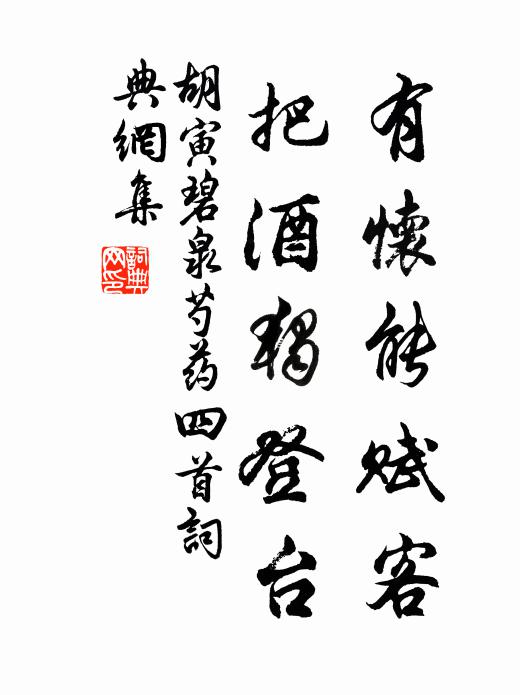 有懷能賦客
把酒獨登台
胡寅碧泉芍药四首詞
典網集
詞典
网印